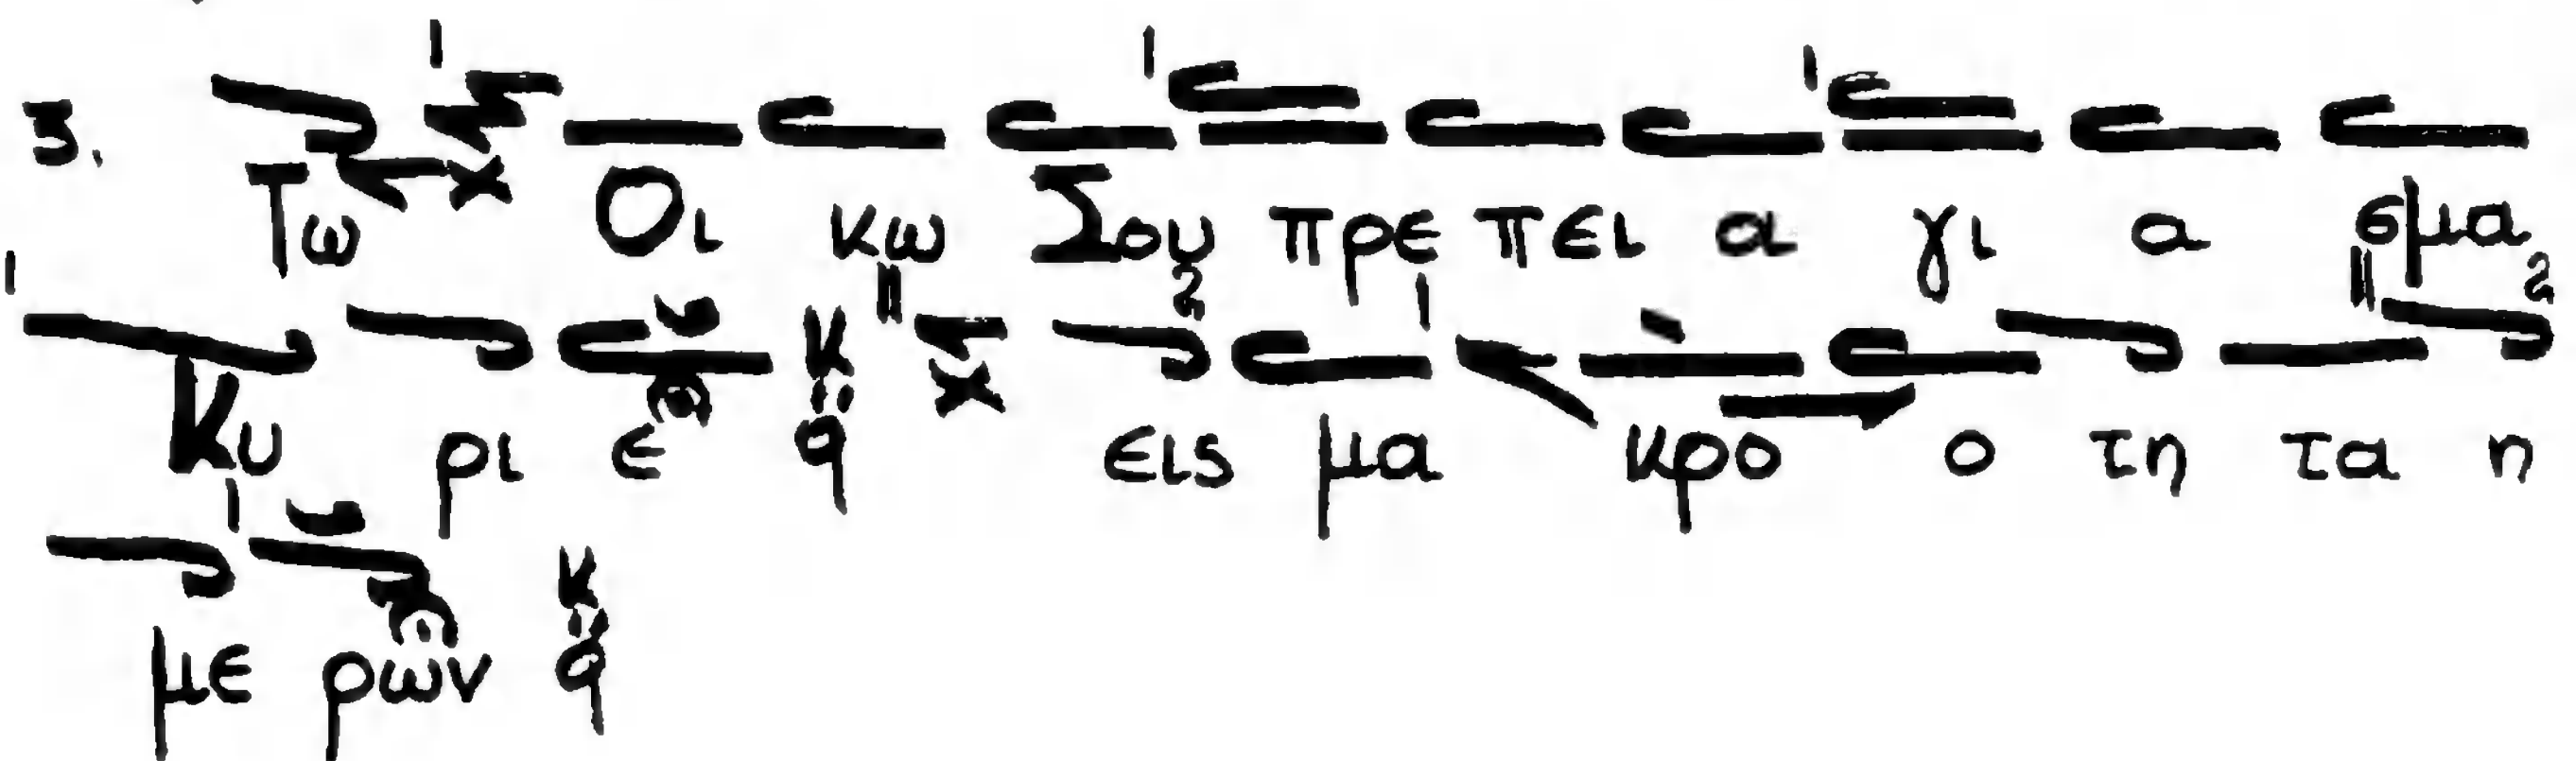 3. Τω Οι κω Σου πρε πει α γι α σμα
Κυ ρι ε q εις μα κρο ο τη τα η
με ρων q